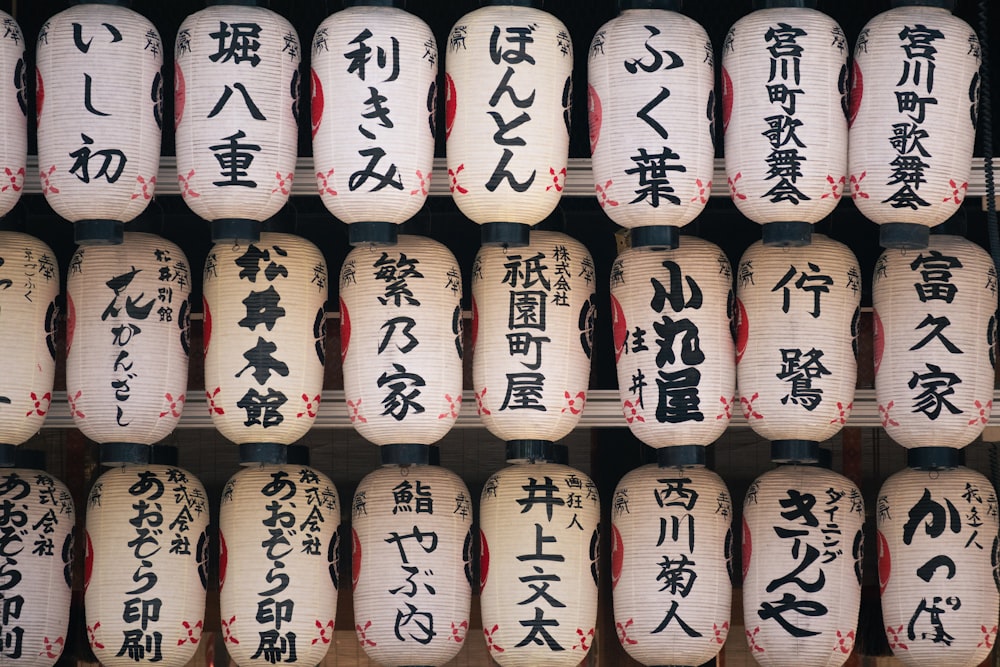 いし初
堀八重
利きみ
ぼんとん
ふく葉
宮川町歌舞会
宮川町歌舞会
花かんざし
松井別館
松井本館
繁乃家
株式会社
祇園町屋
小丸屋
住井
佇
鷺
富久家
あおぞら印刷
株式会社
あおぞら印刷
株式会社
あおぞら印刷
株式会社
鮨
やぶ内
井上文太
狂画人
西川菊人
ダイニング
きりんや
かっぽ
我楽人